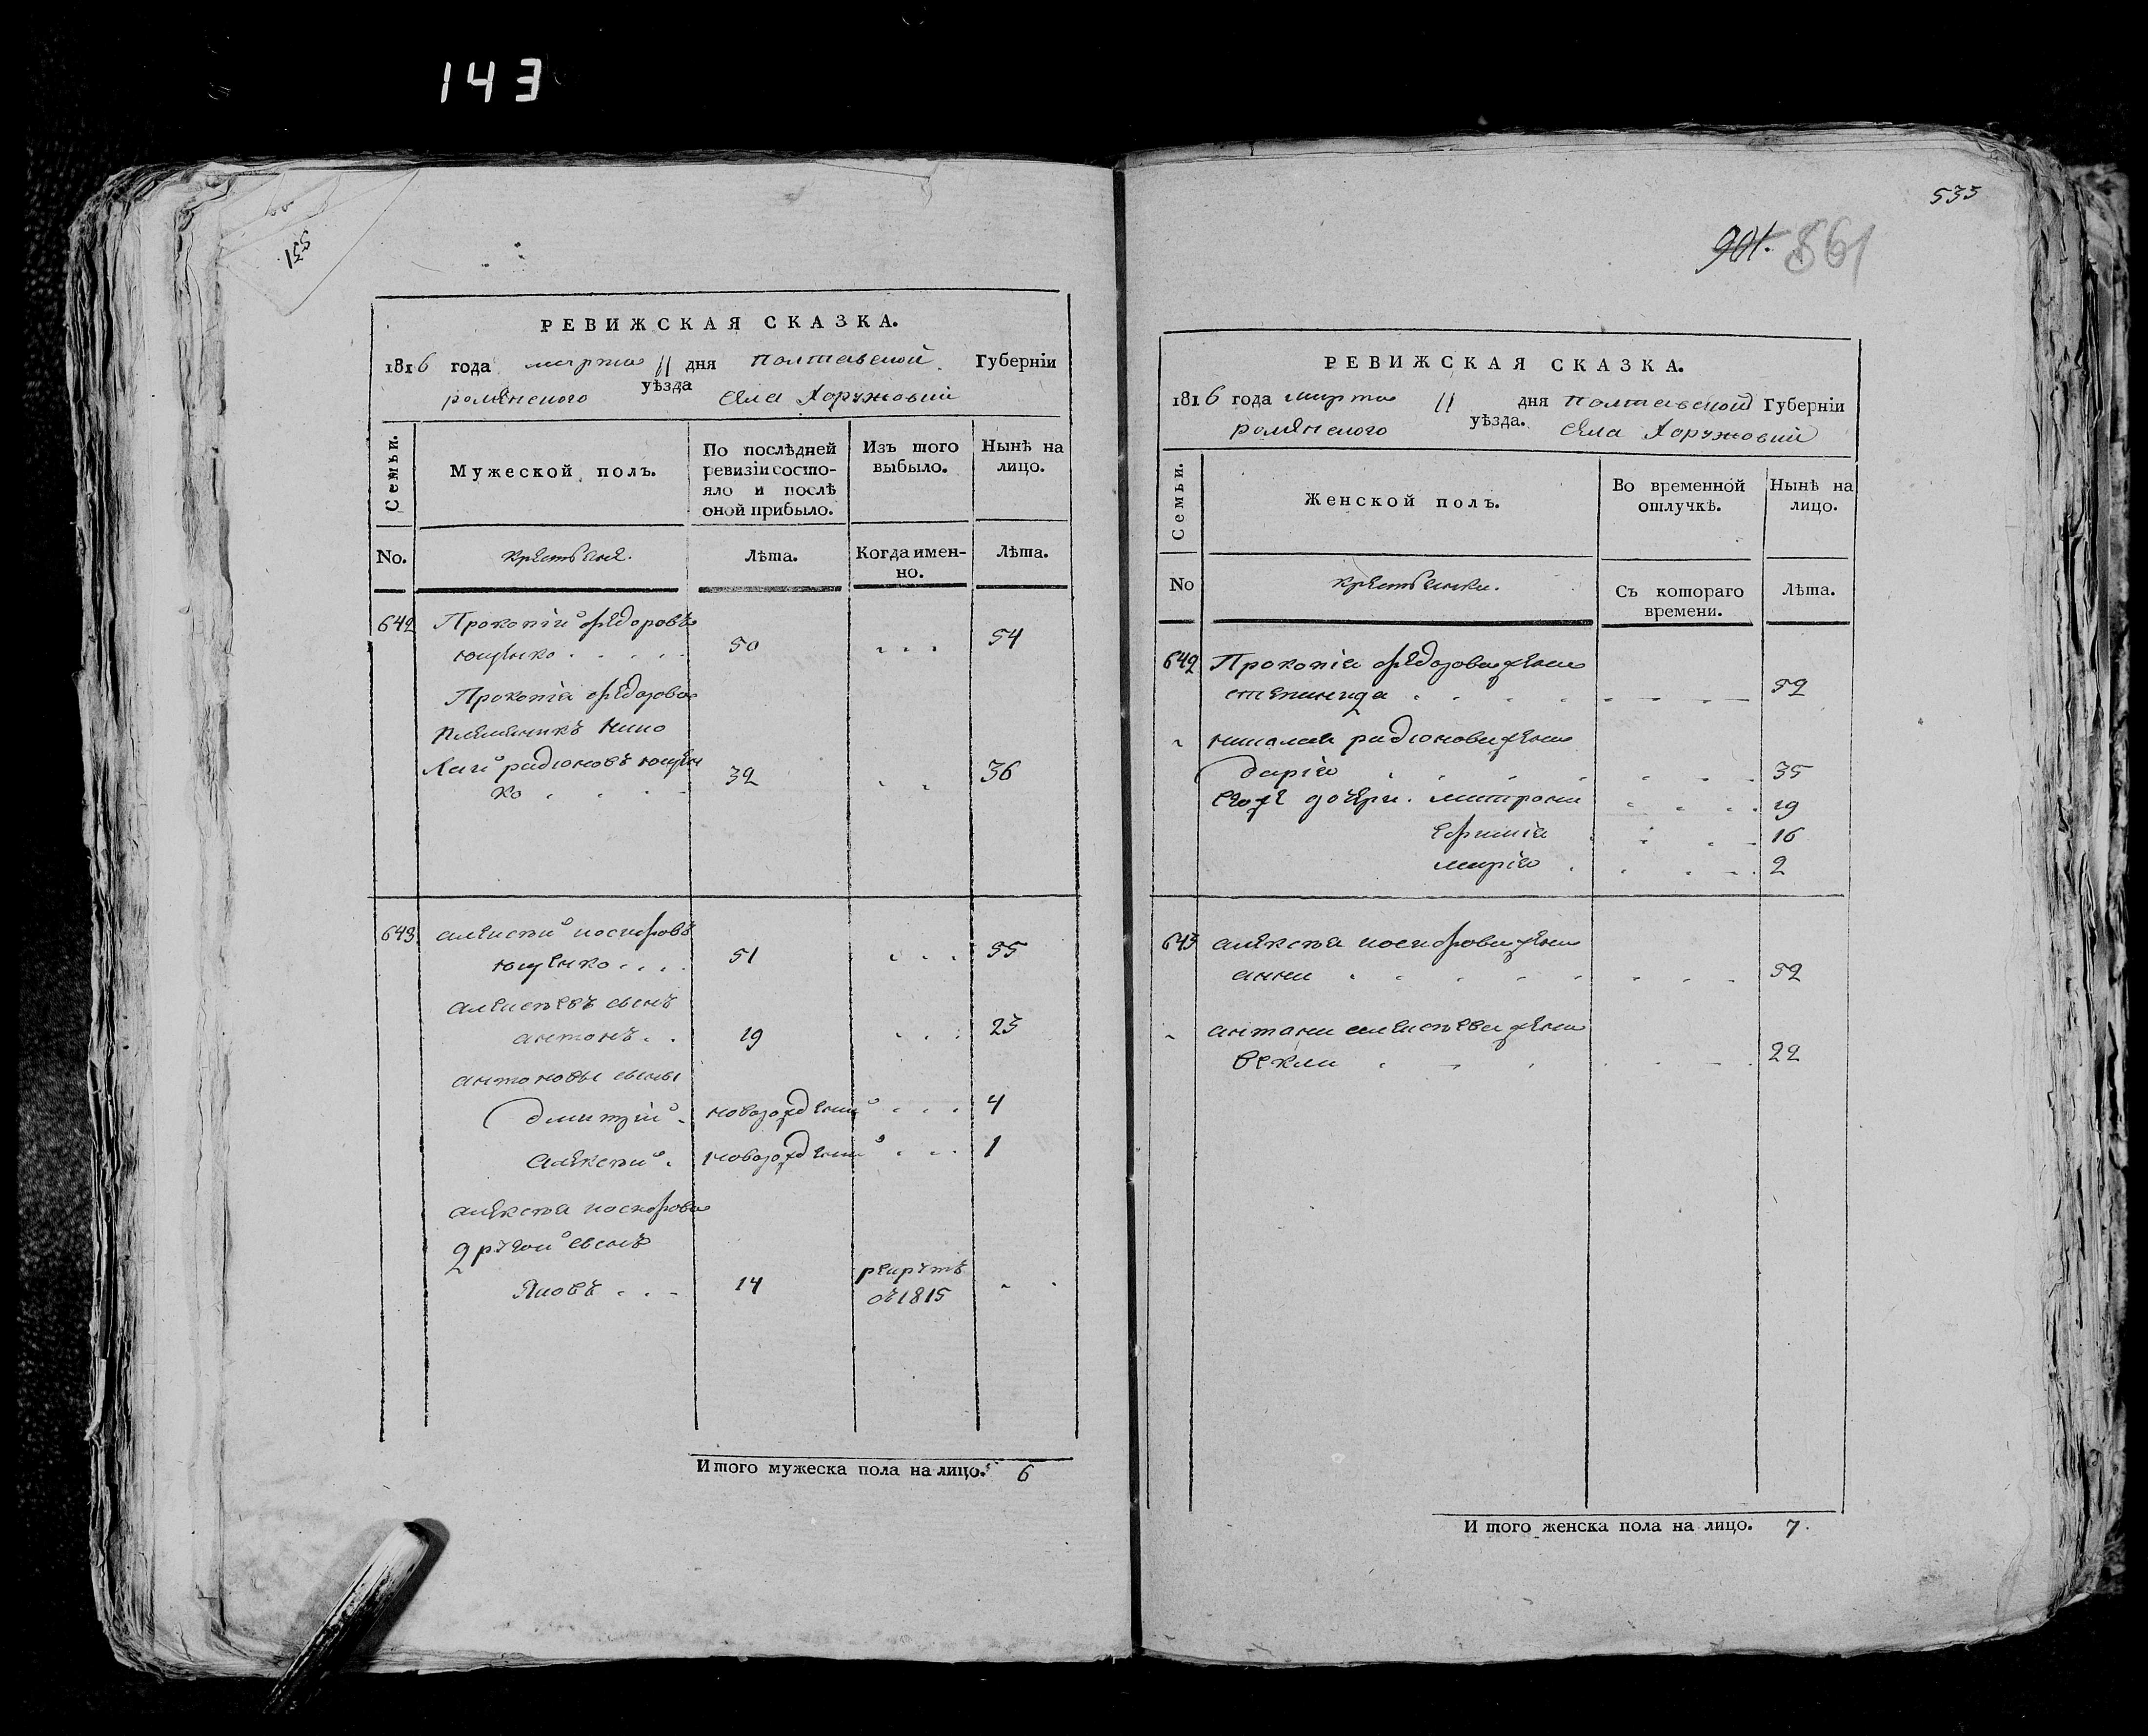 143
531
РЕВИЖСКАЯ СКАЗКА.
1816 года марта 11 дня Полтавской Губерніи
роменского уѣзда села Хоружовки
Семьи.
Мужеской полъ.
По послѣдней ревизіи состояло и послѣ оной прибыло.
Изъ того выбыло.
Нынѣ на лицо.
No.
крестьяне.
Лѣта.
Когда именно.
Лѣта.
642 Прокопій федоровъ
ющенко . . . . . 50 . . . 54
Прокопія федорова
племеникъ Нико
лай радіоновъ ющен
ко . . . . 32 . . 36
643 алексѣй никифоровъ
ющенко . . . . 51 . . . 55
алексѣевъ сынъ
антонъ . . 19 . . . 23
антоновы сыны
дмитрій . новорожденій . . . 4
алексѣй . новорожденій . . . 1
алексѣя никифорова
другой сынъ
Яковъ . . . 14 рекрутъ - .
въ 1815
Итого мужеска пола на лицо. 6
535
901. 861
РЕВИЖСКАЯ СКАЗКА.
1816 года марта 11 дня Полтавской Губерніи
роменского уѣзда. села Хоружовки
Семьи.
Женской полъ.
Во временной отлучкѣ.
Нынѣ на лицо.
No
крестьянки.
Съ котораго времени.
Лѣта.
642 Прокопія федорова жена
степанида . . . . . . . . 52
николая радіонова жена
дарія . . . . . . . . 35
его же дочери. матрона . . . . 19
ефимія . . . . 16
марія . . . . 2
643 алексѣя никифорова жена
анна . . . . . . . . 52
антона алексѣева жена
векла . . . . . . 22
Итого женска пола на лицо. 7.